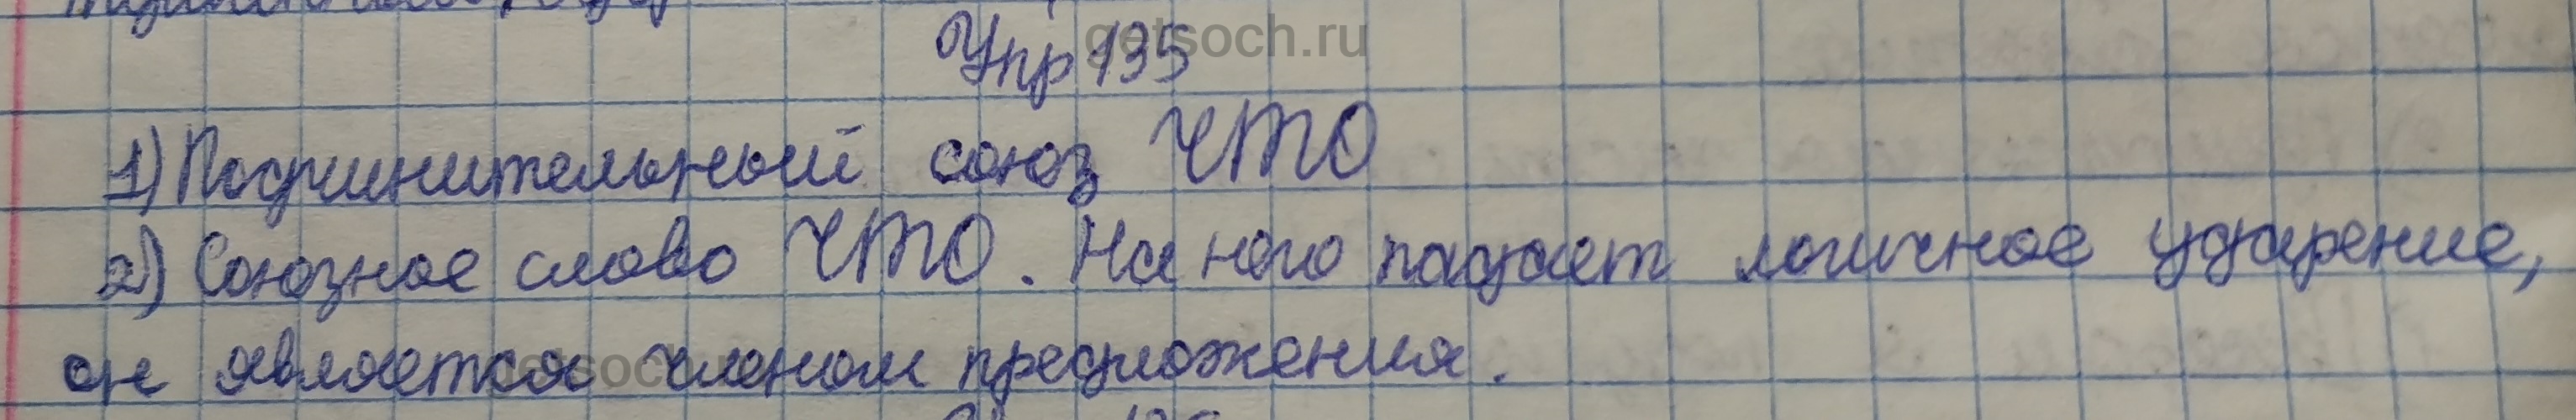 Упр 135
getsoch.ru
1) Подчинительный союз ЧТО
2) Союзное слово ЧТО. На него падает логичное ударение,
он является членом предложения.
getsoch.ru